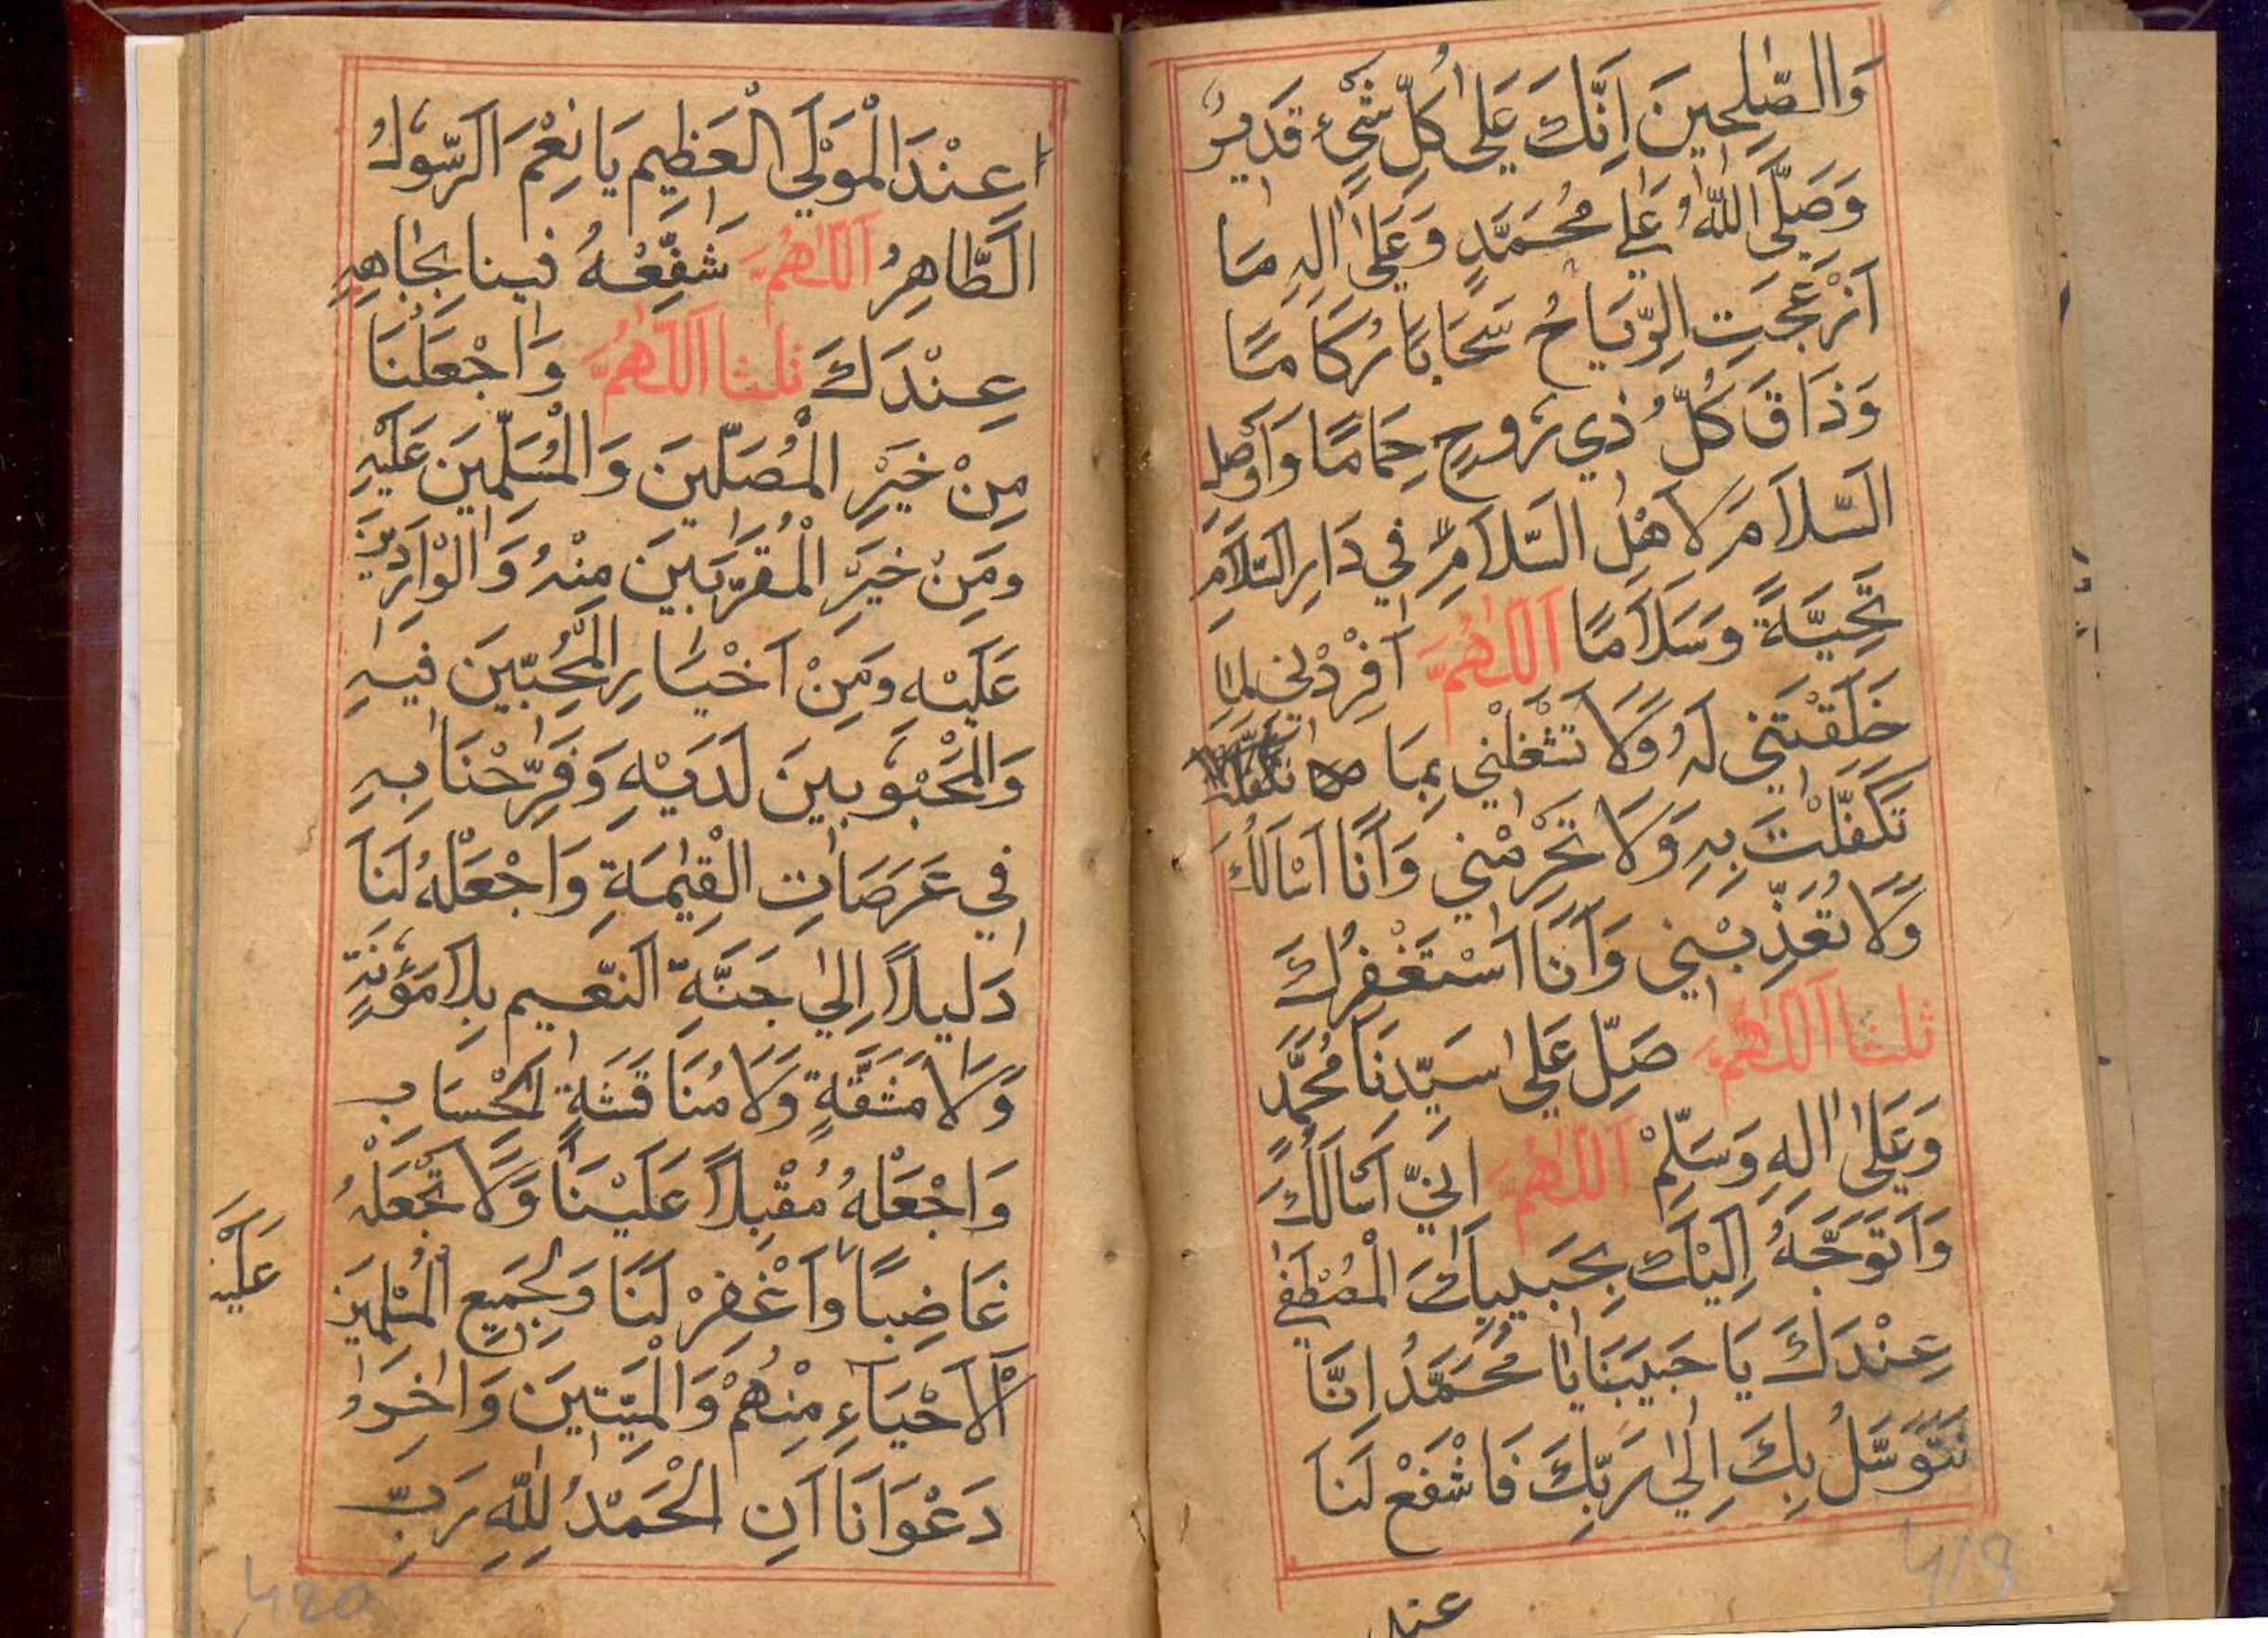 وَالصّٰلِحِينَ اِنَّكَ عَلٰى كُلِّ شَيْءٍ قَدِيرٌ
وَصَلَّى اللّٰهُ عَلٰى مُحَمَّدٍ وَعَلٰى اٰلِهِ مَا
اَزْعَجَتِ الرِّيَاحُ سَحَابًا رُكَامًا
وَذَاقَ كُلُّ ذِي رُوحٍ حِمَامًا وَاَوْصِلِ
السَّلَامَ لِاَهْلِ السَّلَامِ فِي دَارِ السَّلَامِ
تَحِيَّةً وَسَلَامًا اَللّٰهُمَّ اَفْرِدْنِي لِمَا
خَلَقْتَنِي لَهُ وَلَا تَشْغَلْنِي بِمَا
تَكَفَّلْتَ بِهِ وَلَا تَحْرِمْنِي وَاَنَا اَسْاَلُكَ
وَلَا تُعَذِّبْنِي وَاَنَا اَسْتَغْفِرُكَ
ثلثا اَللّٰهُمَّ صَلِّ عَلٰى سَيِّدِنَا مُحَمَّدٍ
وَعَلٰى اٰلِهِ وَسَلِّمْ اَللّٰهُمَّ اِنِّي اَسْاَلُكَ
وَاَتَوَجَّهُ اِلَيْكَ بِحَبِيبِكَ الْمُصْطَفٰى
عِنْدَكَ يَا حَبِيبَنَا يَا مُحَمَّدُ اِنَّا
نَتَوَسَّلُ بِكَ اِلٰى رَبِّكَ فَاشْفَعْ لَنَا
عند
419
عِنْدَ الْمَوْلَى الْعَظِيمِ يَا نِعْمَ الرَّسُولُ
الطَّاهِرُ اَللّٰهُمَّ شَفِّعْهُ فِينَا بِجَاهِهِ
عِنْدَكَ ثلثا اَللّٰهُمَّ وَاجْعَلْنَا
مِنْ خَيْرِ الْمُصَلِّينَ وَالْمُسَلِّمِينَ عَلَيْهِ
وَمِنْ خَيْرِ الْمُقَرَّبِينَ مِنْهُ وَالْوَارِدِينَ
عَلَيْهِ وَمِنْ اَخْيَارِ الْمُحِبِّينَ فِيهِ
وَالْمَحْبُوبِينَ لَدَيْهِ وَفَرِّحْنَا بِهِ
فِي عَرَصَاتِ الْقِيٰمَةِ وَاجْعَلْهُ لَنَا
دَلِيلًا اِلٰى جَنَّةِ النَّعِيمِ بِلَا مَؤُنَةٍ
وَلَا مَشَقَّةٍ وَلَا مُنَاقَشَةِ الْحِسَابِ
وَاجْعَلْهُ مُقْبِلًا عَلَيْنَا وَلَا تَجْعَلْهُ
غَاضِبًا وَاغْفِرْ لَنَا وَلِجَمِيعِ الْمُسْلِمِينَ
الْاَحْيَاءِ مِنْهُمْ وَالْمَيِّتِينَ وَاٰخِرُ
دَعْوَانَا اَنِ الْحَمْدُ لِلّٰهِ رَبِّ
عَلَيْنَا
420